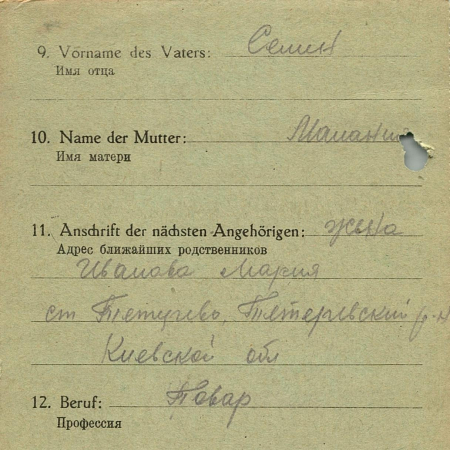 9. Vorname des Vaters: Семин
Имя отца
10. Name der Mutter: Малани
Имя матери
11. Anschrift der nächsten Angehörigen: жына
Адрес ближайших родственников
Иванова Мария
ст Тетерево, Тетеревский р-н
Киевской обл
12. Beruf: Повар
Профессия